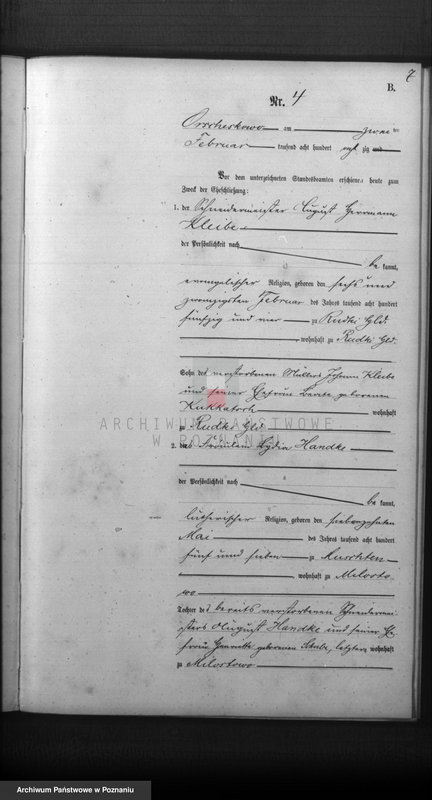 7
B.
Nr. 4
Orscheskowo am zwei ten
Februar tausend acht hundert acht zig und
Vor dem unterzeichneten Standesbeamten erschienen heute zum
Zweck der Eheschließung:
1. der Schneidermeister August Herrmann
Kleibe
der Persönlichkeit nach
be kannt,
evangelischer Religion, geboren den sechs und
zwanzigsten Februar des Jahres tausend acht hundert
fünfzig und vier zu Rudki Gld.
wohnhaft zu Rudki Gld.
Sohn des verstorbenen Müllers Johann Kleibe
und seiner Ehefrau Beate geborenen
wohnhaft
zu Rudki Gld
ARCHIWUM PAŃSTWOWE
W POZNANIU
2. die Fräulein Lydia Handke
der Persönlichkeit nach
be kannt,
lutherischer Religion, geboren den siebenzehnten
Mai des Jahres tausend acht hundert
fünf und sieben zu Muschten
wohnhaft zu Milosto
wo
Tochter des bereits verstorbenen Schneidermei
sters August Handke und seiner Ehe
frau geborenen letztere wohnhaft
zu Milostowo
Archiwum Państwowe w Poznaniu